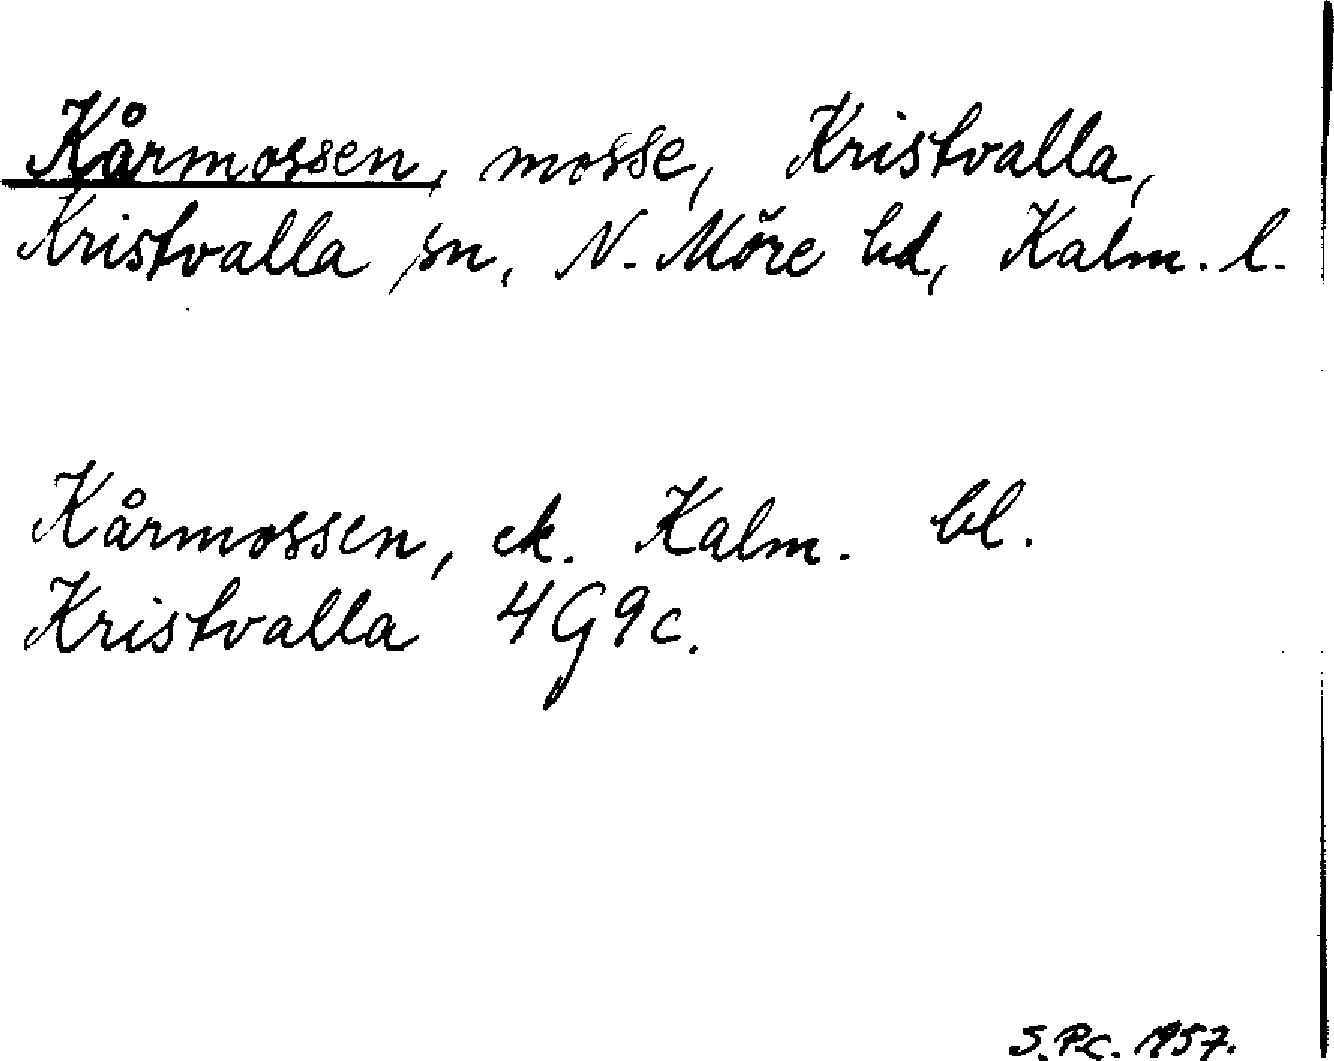 Kårmossen, mosse, Kristvalla,
Kristvalla sn, N. Möre hd, Kalm. l.
Kårmossen, ek. Kalm. bl.
Kristvalla 4G9c.
S.P.C. 1957.